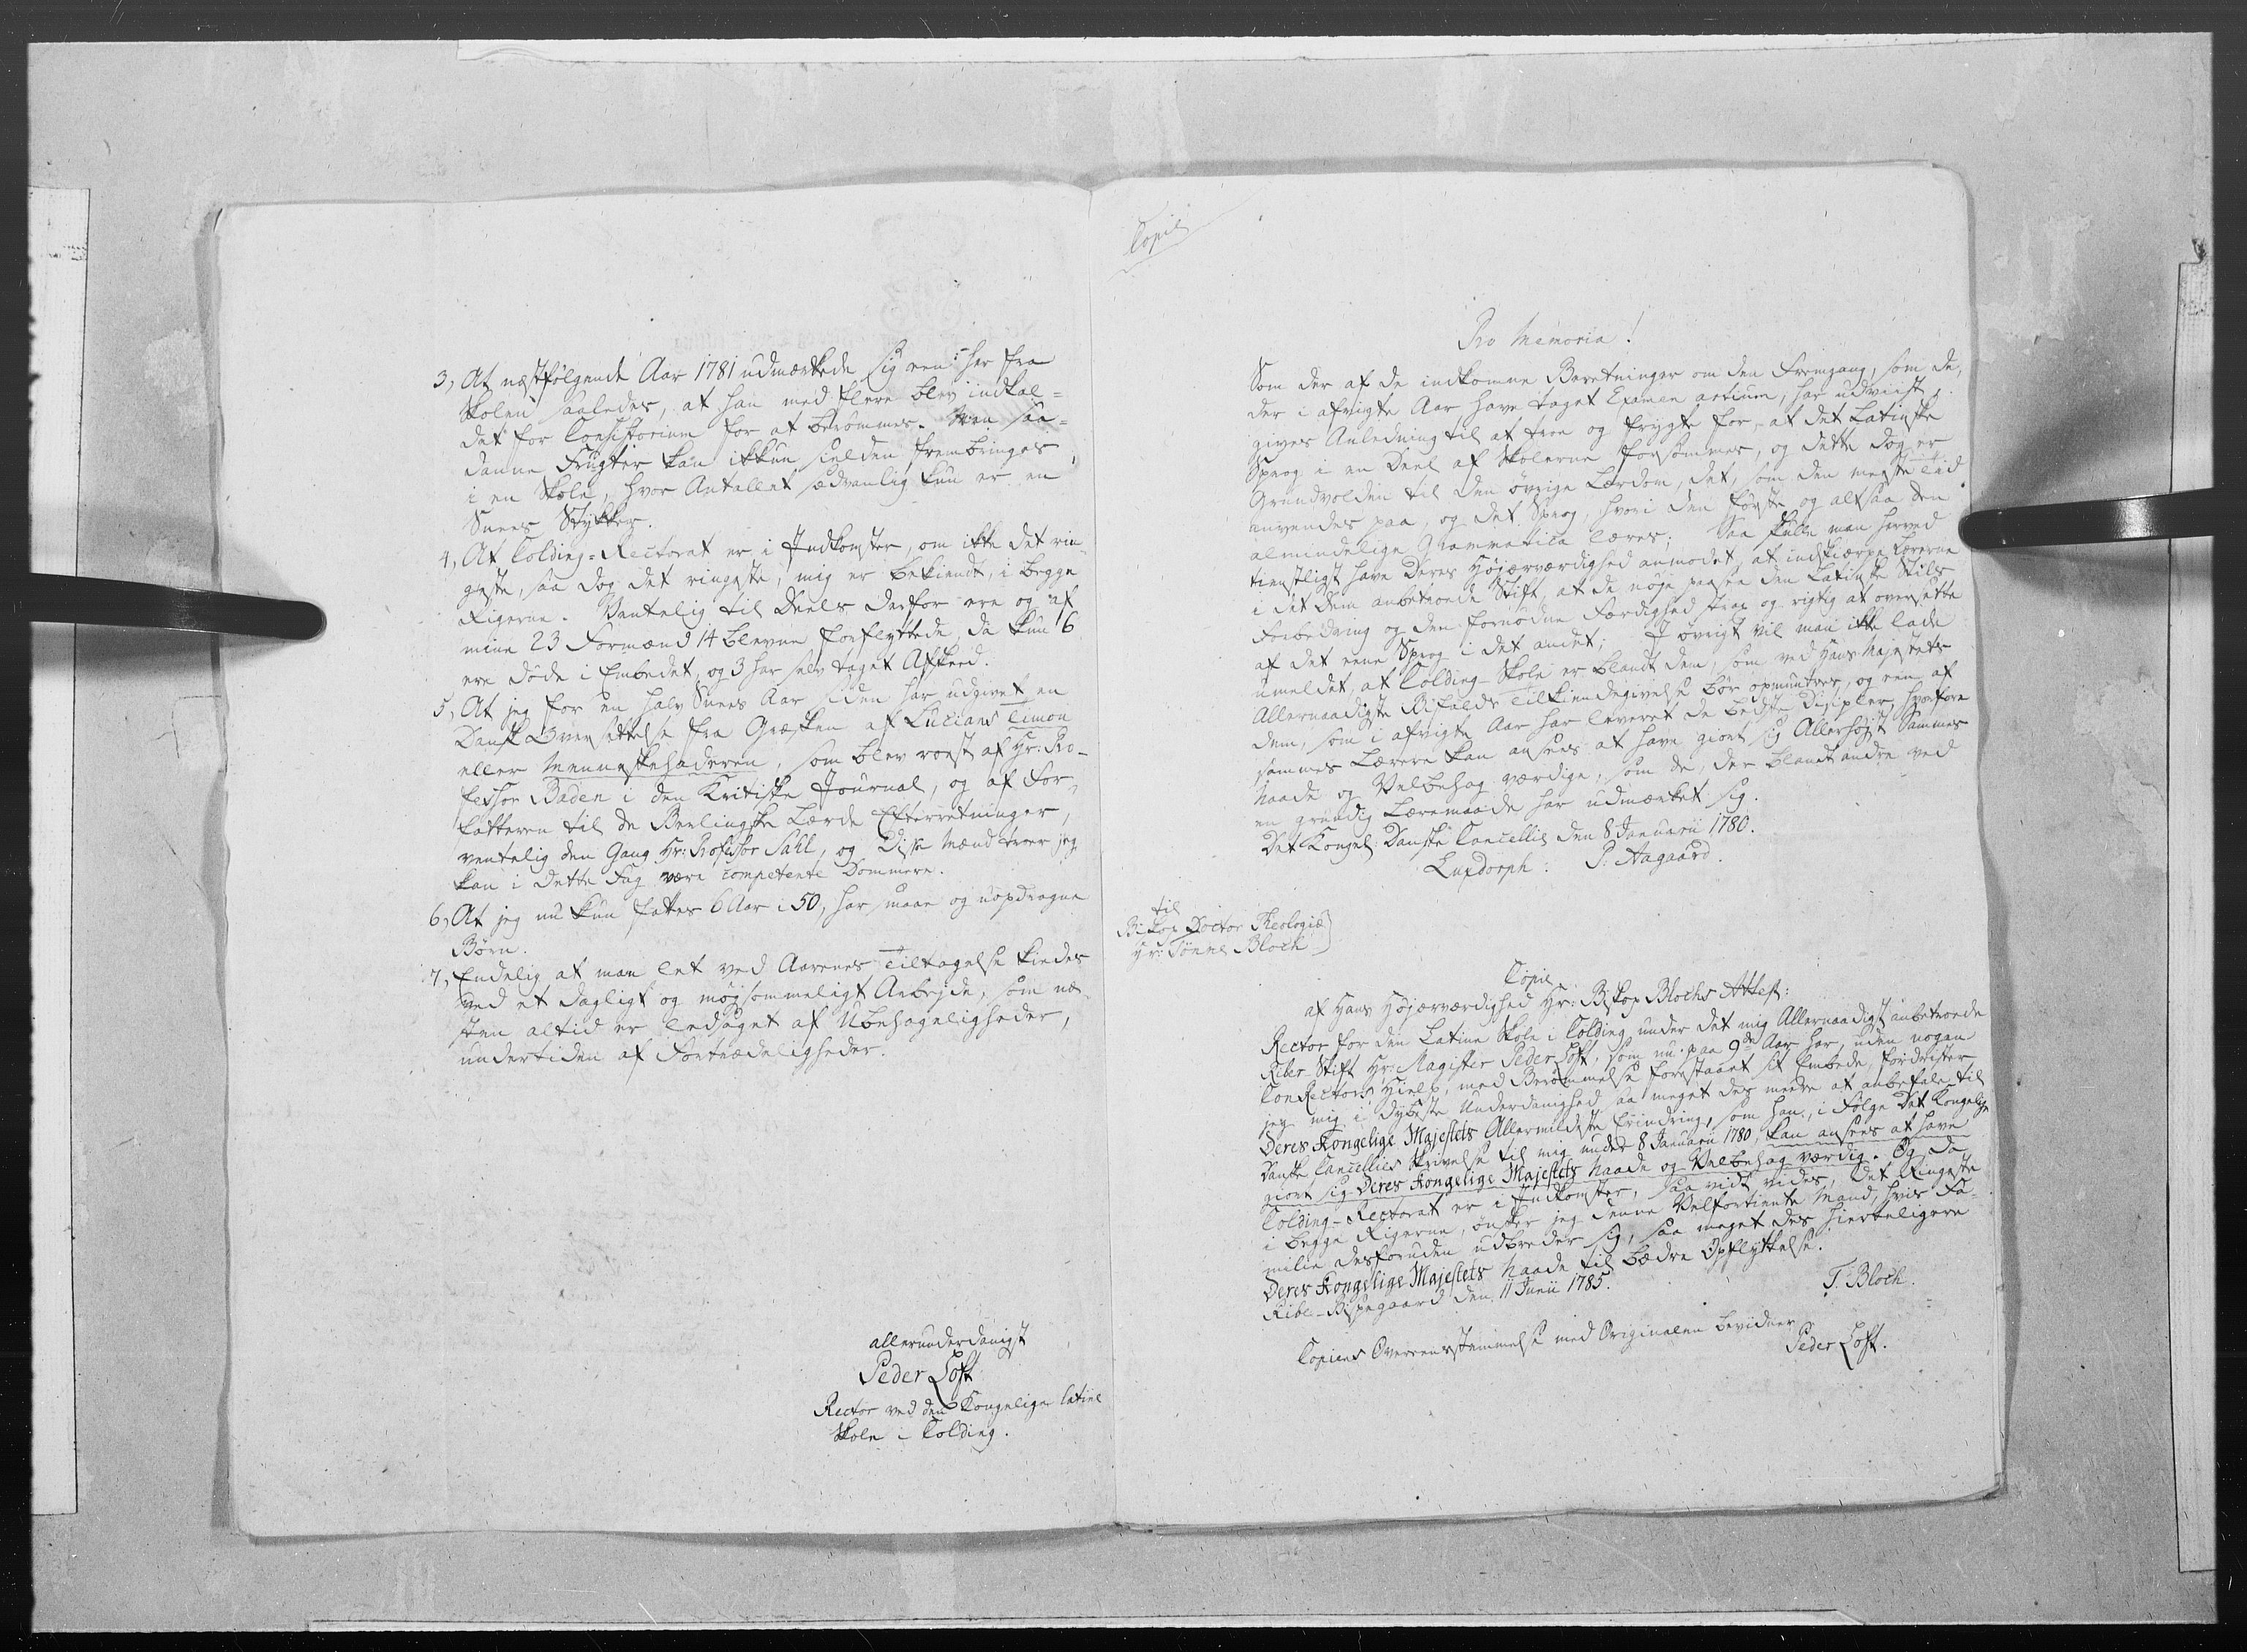 3, At næstfølgende Aar 1781 udmærkede sig een her fra
Skolen saaledes, at han med flere blev indkal=
det for Consistorium for at berømmes. Men saa=
danne Frugter kan ikkun sielden frembringes
i en Skole, hvor Antallet sædvanlig kun er en
Snees Stykker.
4, At Colding-Rectorat er i Indkomster, om ikke det rin
geste, saa dog det ringeste, mig er bekiendt, i begge
Rigerne. Ventelig til Deels derfor ere og af
mine 23 Formænd 14 blevne forflyttede, da kun 6
ere døde i Embedet, og 3 har selv taget Afskeed.
5, At jeg for en halv Snees Aar siden har udgivet en
Dansk Oversættelse fra Græsken af Lucians Timon
eller Menneskehaderen, som blev roest af Hr: Pro-
fessor Baden i den Kritiske Journal, og af For-
fatteren til de Berlingske Lærde Efterretninger,
ventelig den Gang Hr: Professor Sahl, og disse Mænd troer jeg
kan i dette Fag være competente Dommere.
6, At jeg nu kun fattes 6 Aar i 50, har smaae og uopdragne
Børn.
7, Endelig at man let ved Aarenes Tiltagelse kiedes
ved et dagligt og møjsommeligt Arbejde, som næ
sten altid er ledsaget af Ubehageligheder,
undertiden af Fortrædeligheder.
allerunderdanigst
Peder Loft
Rector ved den Kongelige Latine
Skole i Colding.
Copie
Pro Memoria!
Som der af de indkomne Beretninger om den Fremgang, som de,
der i afvigte Aar have taget Examen artium, har udviist,
gives Anledning til at troe og frygte for, at det Latinske
Sprog i en Deel af Skolerne forsømmes, og dette dog er
Grundvolden til den øvrige Lærdom, det, som den meste Tiid
anvendes paa, og det Sprog, hvori den første og altsaa den
almindelige Grammatica læres; Saa skulle man herved
tienstligst have Deres Højærværdighed anmodet, at indskiærpe Lærerne
i det Dem anbetroede Stift, at de nøje paasee den Latinske Stiils
Forbedring og den fornødne Færdighed strax og rigtig at oversætte
af det eene Sprog i det andet; I øvrigt vil man ikke lade
umeldet, at Colding-Skole er blandt dem, som ved Hans Majestets
Allernaadigste Bifalds Tilkiendegivelse bør opmuntres, og een af
dem, som i afvigte Aar har leveret de bedste Disipler, hvorfore
sammes Lærere kan ansees at have giort sig Allerhøjst Sammes
Naade og Velbehag værdige, som de, der blandt andre ved
en grundig Læremaade har udmærket sig.
Det Kongel: Danske Cancellie den 8 Januarii 1780.
Luxdorph: P. Aagaard.
til
Biskop Doctor Theologiæ
Hr: Tønne Bloch
Copie
af Hans Højærværdighed Hr: Biskop Blochs Attest:
Rector for den Latine Skole i Colding under det mig Allernaadigst anbetroede
Riber-Stift Hr: Magister Peder Loft, som nu paa 9de Aar har, uden nogen
ConRectors Hielp, med Berømmelse forestaaet sit Embede, fordrister
jeg mig i dybeste Underdanighed saa meget des meere at anbefale til
Deres Kongelige Majestets Allermildeste Erindring, som han, i Følge Det Kongelige
Danske Cancellies Skrivelse til mig under 8 Januarii 1780, kan ansees at have
giort sig Deres Kongelige Majestets Naade og Velbehag værdig. Og da
Colding-Rectorat er i Indkomster, saa vidt vides, det Ringeste
i begge Rigerne, ønsker jeg denne Velfortiente Mand, hvis Fa-
milie desforuden udbreder sig, saa meget des hierteligere
Deres Kongelige Majestets Naade til bædre Opflyttelse.
Ribe-Bispegaard den 11 Junii 1785.
T. Bloch.
Copiens Overeensstemmelse med Originalen bevidner
Peder Loft.